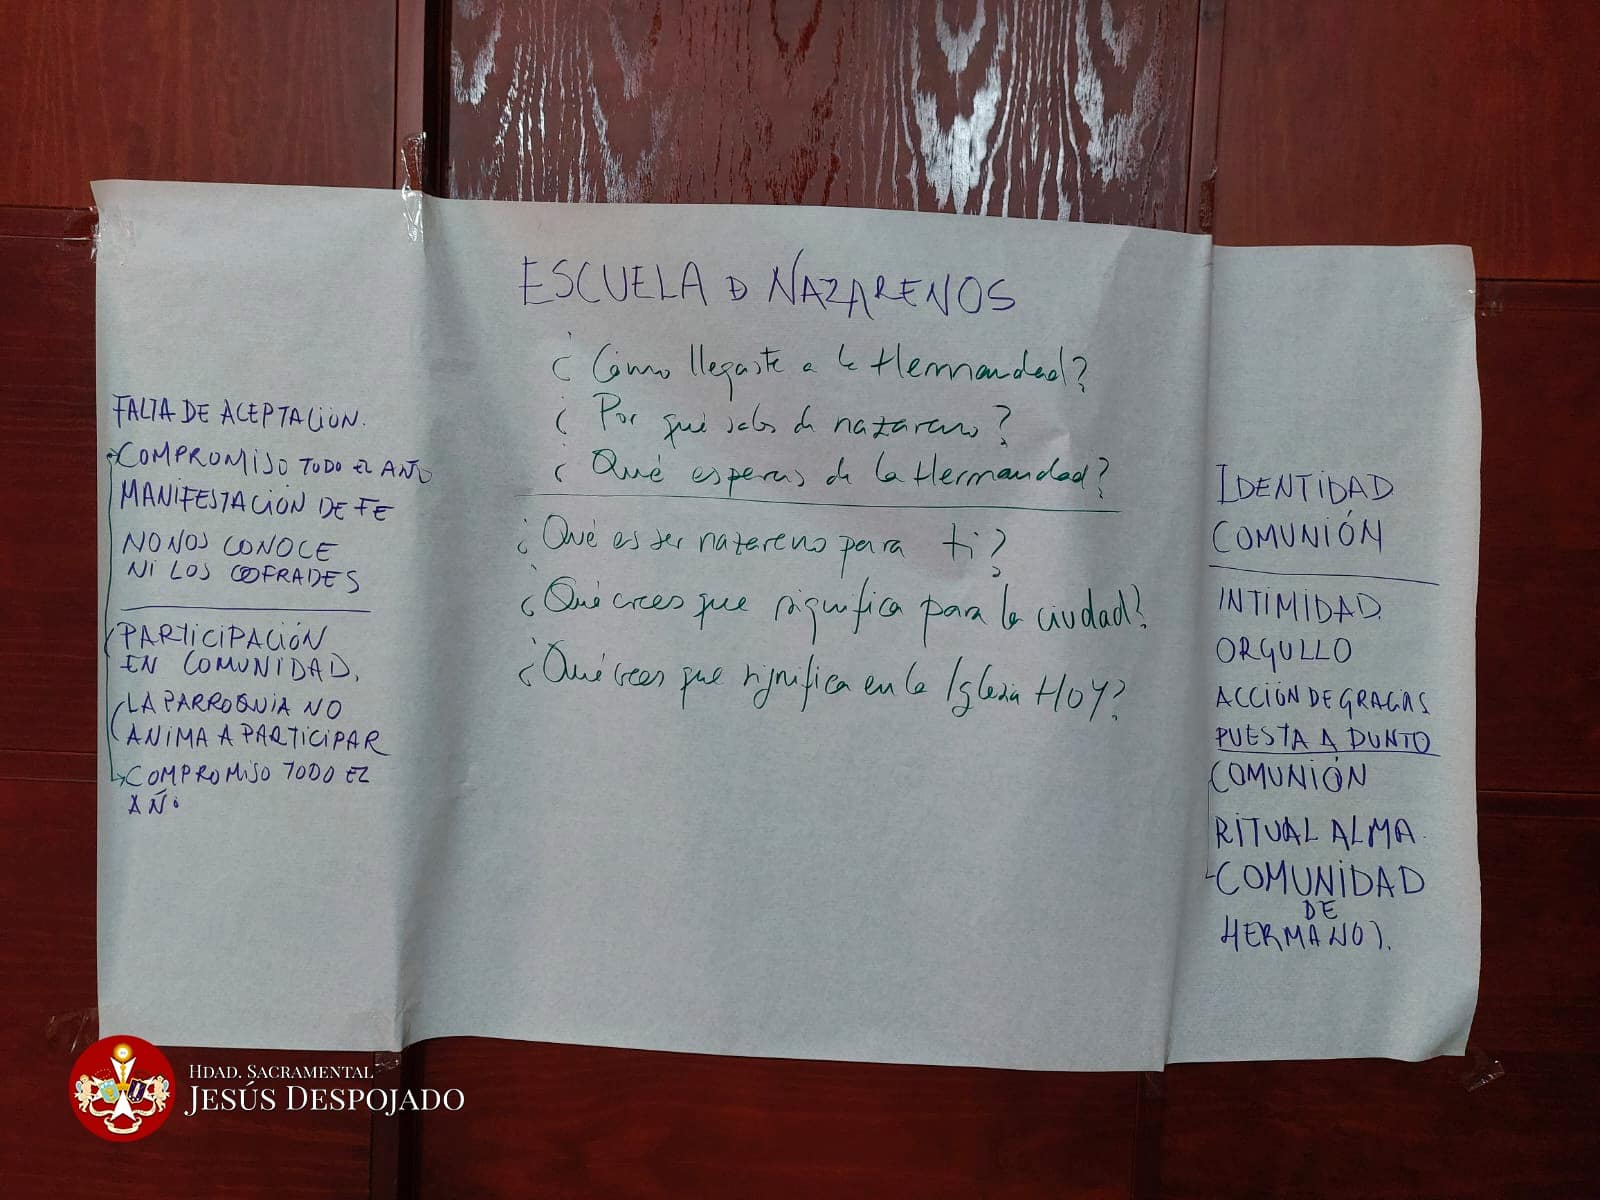 ESCUELA D NAZARENOS
¿Cómo llegaste a la Hermandad?
¿Por qué sales de nazareno?
¿Qué esperas de la Hermandad?
¿Qué es ser nazareno para ti?
¿Qué crees que significa para la ciudad?
¿Qué crees que significa en la Iglesia HOY?
FALTA DE ACEPTACIÓN.
COMPROMISO TODO EL AÑO
MANIFESTACIÓN DE FE
NO NOS CONOCE
NI LOS COFRADES
PARTICIPACIÓN
EN COMUNIDAD.
LA PARROQUIA NO
ANIMA A PARTICIPAR
COMPROMISO TODO EL
AÑO
IDENTIDAD
COMUNIÓN
INTIMIDAD.
ORGULLO
ACCIÓN DE GRACIAS
PUESTA A PUNTO
COMUNIÓN
RITUAL ALMA.
COMUNIDAD
DE
HERMANOS.
HDAD. SACRAMENTAL
JESÚS DESPOJADO